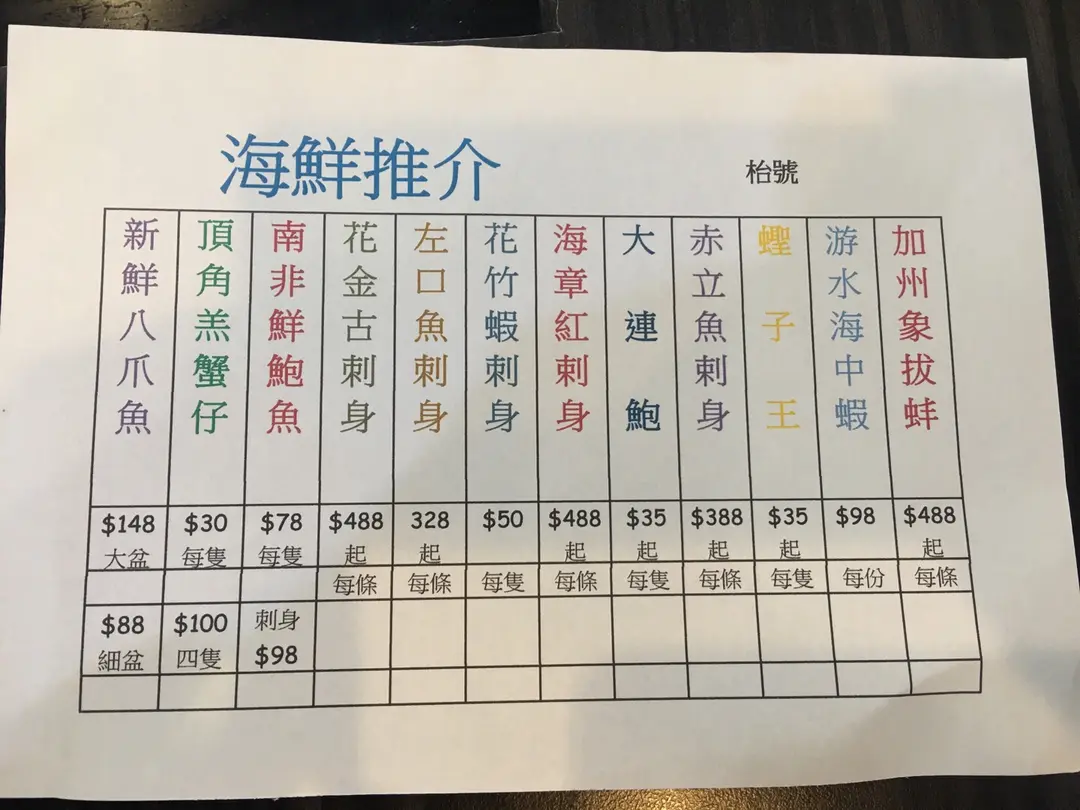 海鮮推介
枱號
新鮮八爪魚
頂角羔蟹仔
南非鮮鮑魚
花金古刺身
左口魚刺身
花竹蝦刺身
海章紅刺身
大連鮑
赤立魚刺身
蟶子王
游水海中蝦
加州象拔蚌
$148 $30 $78 $488 328 $50 $488 $35 $388 $35 $98 $488
大盆 每隻 每隻 起 起 起 起 起 起 起
每條 每條 每隻 每條 每隻 每條 每隻 每份 每條
$88 $100 刺身
細盆 四隻 $98